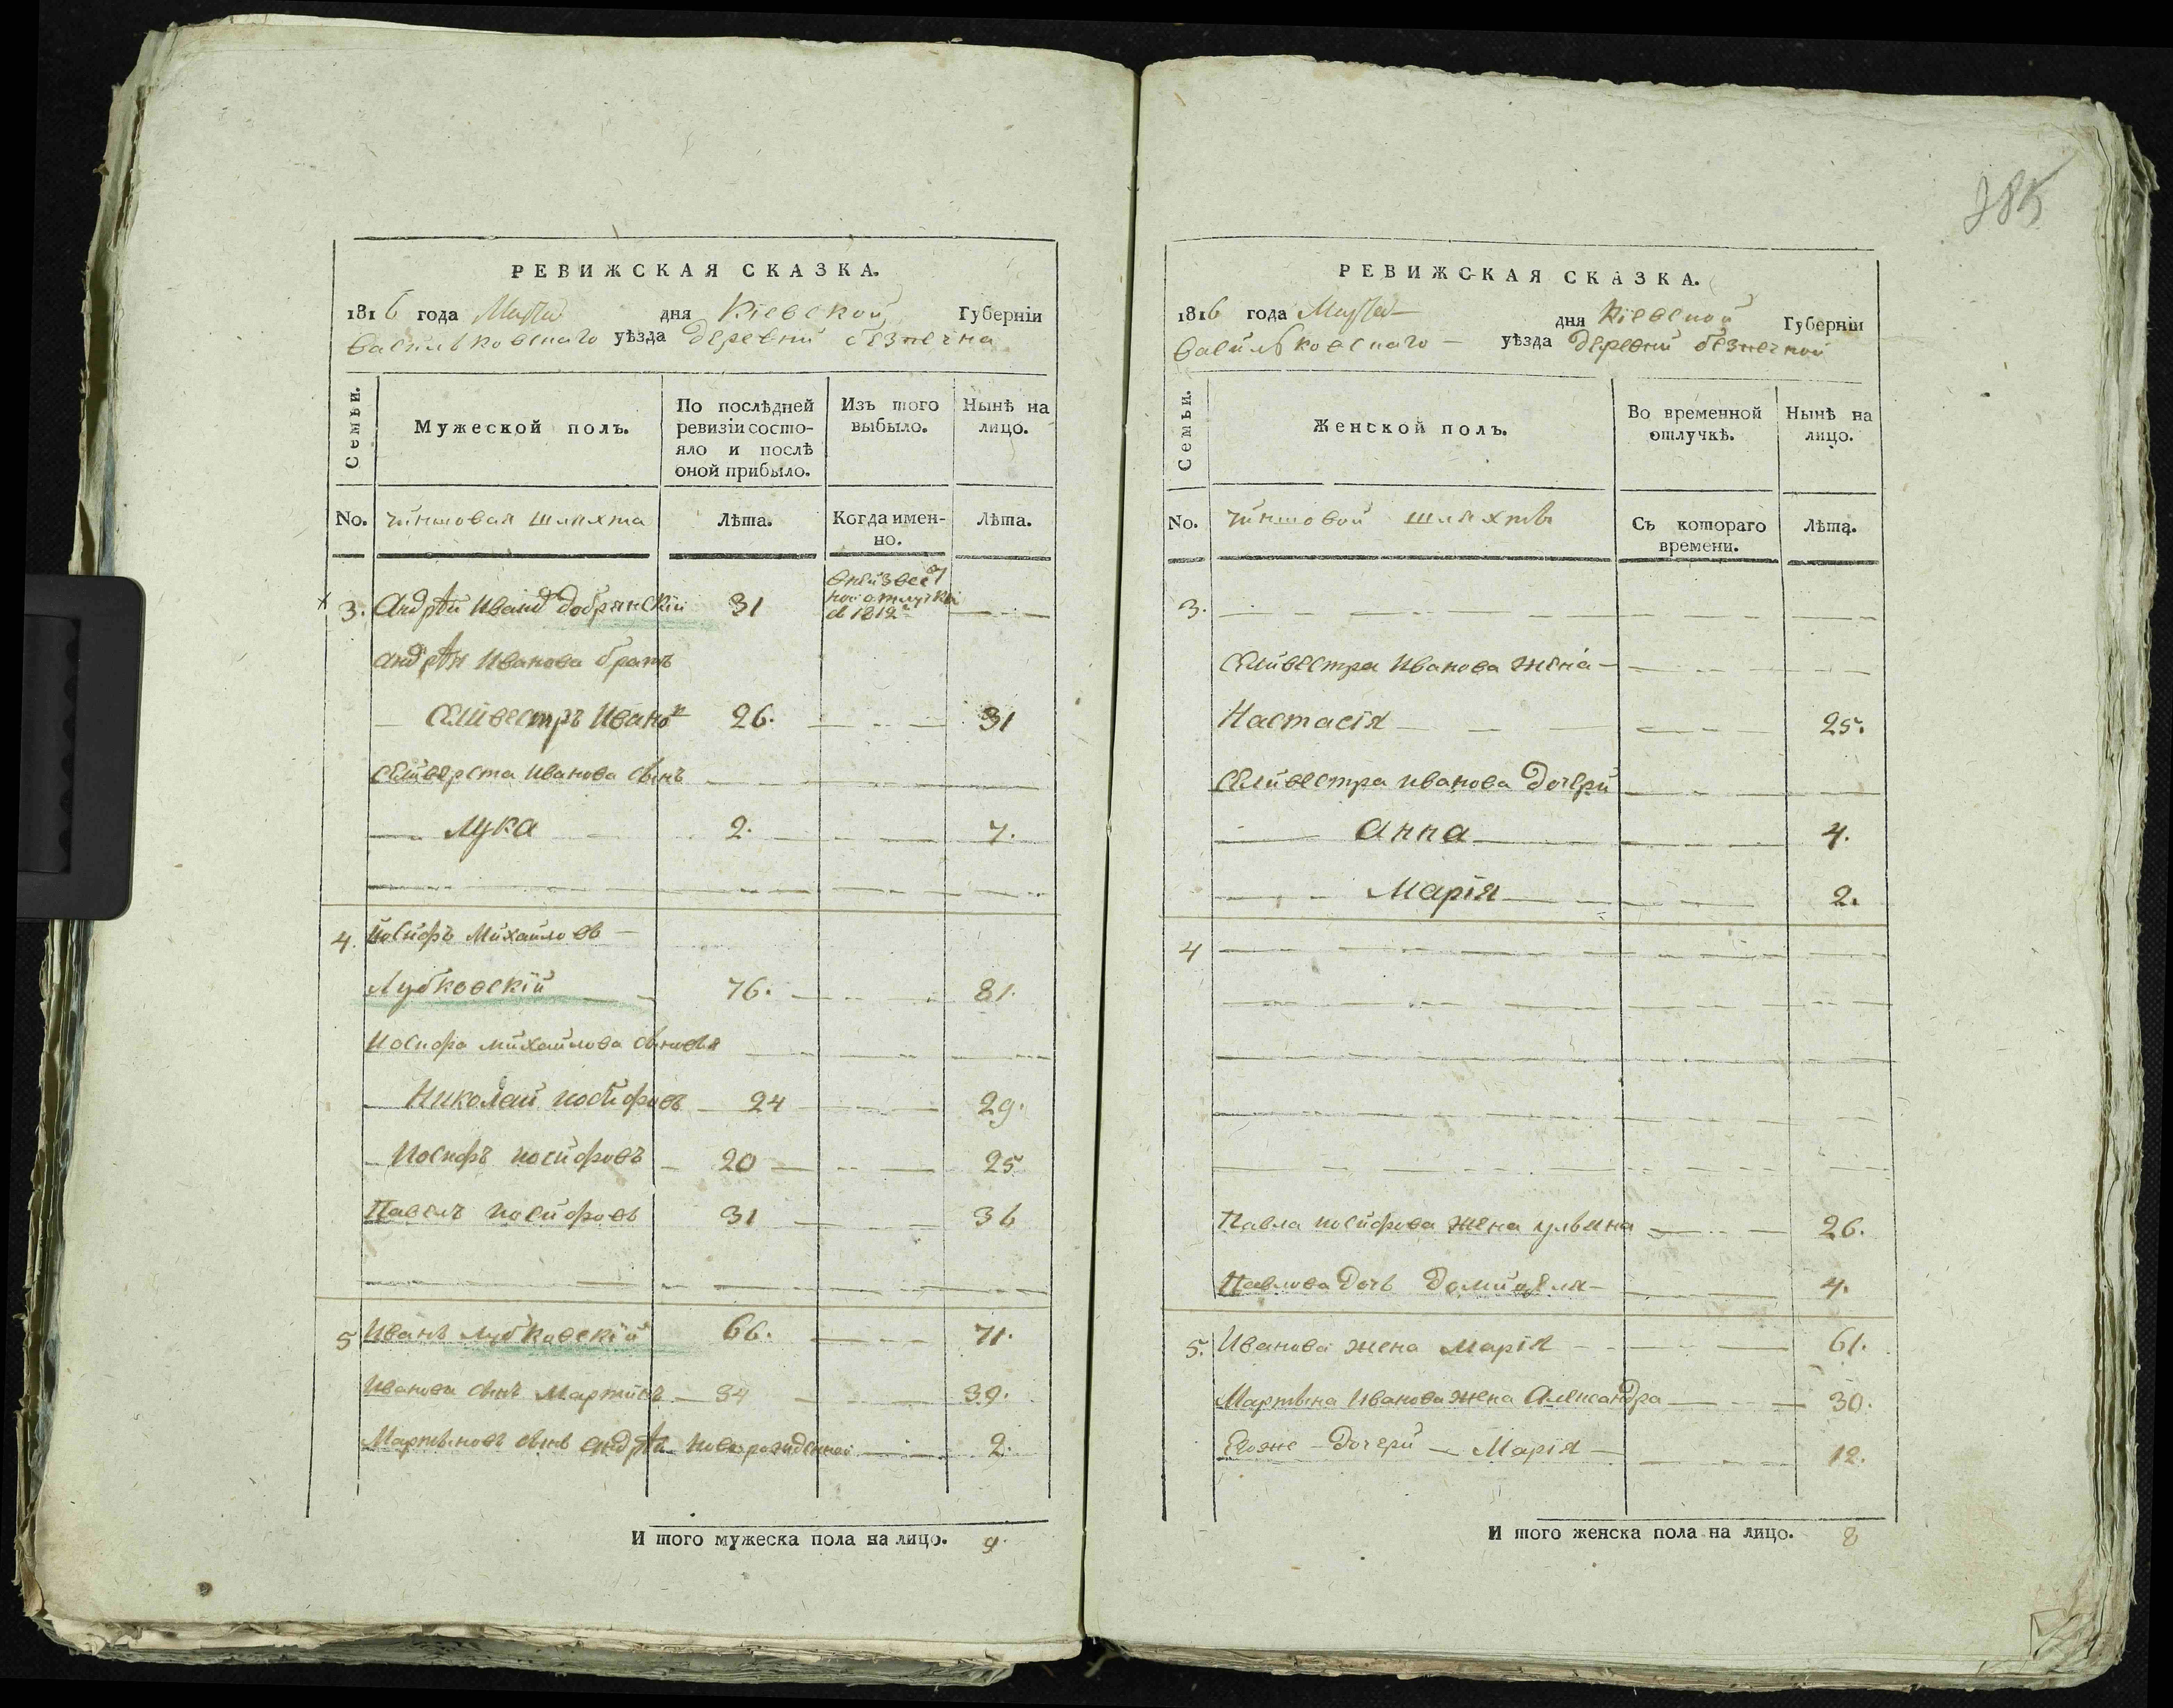 РЕВИЖСКАЯ СКАЗКА.
1816 года Марта дня Кіевской Губерніи
Васильковскаго уѣзда деревни безпечна
Семьи.
Мужеской полъ.
По послѣдней ревизіи состо-
яло и послѣ
оной прибыло.
Изъ того
выбыло.
Нынѣ на
лицо.
No. чиншовая шляхта Лѣта. Когда имен-
но. Лѣта.
3. Андрѣй Иванов Добрянскій 31 в неизвест
ной отлучки
с 1812 г
андрѣя Иванова братъ
Селивестръ Иванов 26. 31
Селиверста Иванова сынъ
Лука 2. 7.
4. Иосифъ Михайловъ
Лубковскій 76. 81.
Иосифа михайлова сыновья
Николай иосифовъ 24 29.
Иосифъ иосифовъ 20 25
Павелъ иосифовъ 31 36
5 Иванъ Лубковскій 66. 71.
Иванова сынъ Мартинъ 34 39.
Мартыновъ сынъ андрѣй новорожденной 2.
И того мужеска пола на лицо. 9.
285
РЕВИЖСКАЯ СКАЗКА.
1816 года Марта дня Кіевской Губерніи
Васильковскаго уѣзда деревни безпечной
Семьи.
Женской полъ.
Во временной
отлучкѣ.
Нынѣ на
лицо.
No. чиншовой шляхтѣ Съ котораго
времени. Лѣта.
3.
Селивестра Иванова жена
Настасія 25.
Селивестра иванова дочери
Анна 4.
Марія 2.
4
Павла иосифова жена ульяна 26.
Павлова дочь Домицеля 4.
5. Иванова жена Марія 61.
Мартына Иванова жена Александра 30.
Егоже дочери Марія 12.
И того женска пола на лицо. 8